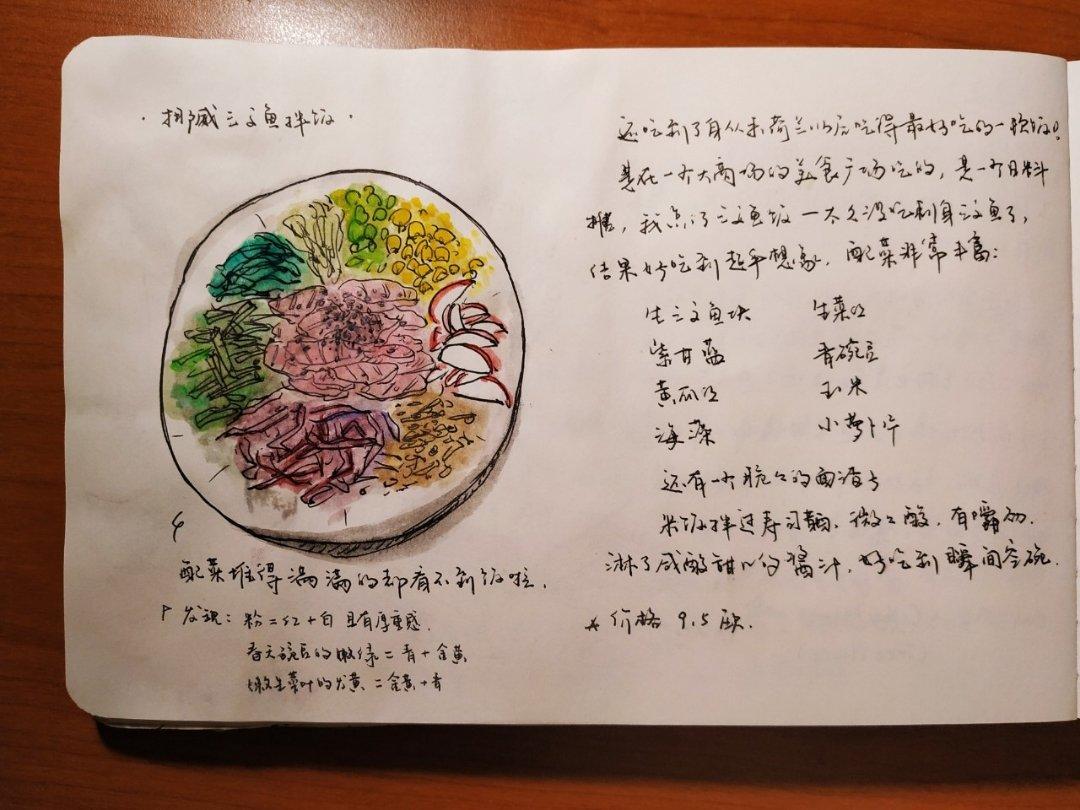 ·挪威三文鱼拌饭·
配菜堆得满满的都看不到饭啦。
发现：粉=红+白 且有厚重感.
春天碗豆的嫩绿=青+金黄
嫩生菜叶的黄=金黄+青
还吃到了自从来荷兰以后吃得最好吃的一顿饭！
是在一个大商场的美食广场吃的，是一个日料
摊，我点了三文鱼饭—太久没吃刺身三文鱼了，
结果好吃到超乎想象，配菜非常丰富：
生三文鱼块 生菜丝
紫甘蓝 青碗豆
黄瓜丝 玉米
海藻 小萝卜片
还有一个脆脆的面渣
米饭拌过寿司醋，微微酸，有嚼劲.
淋了咸酸甜的酱汁，好吃到瞬间空碗.
* 价格 9.5欧.